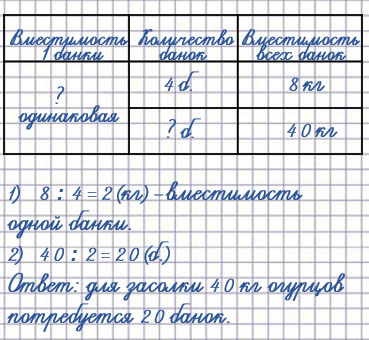 Вместимость 1 банки Количество банок Вместимость всех банок
? одинаковая 4 б. 8 кг
? б. 40 кг
1) 8 : 4 = 2 (кг) – вместимость
одной банки.
2) 40 : 2 = 20 (б.)
Ответ: для засолки 40 кг огурцов
потребуется 20 банок.